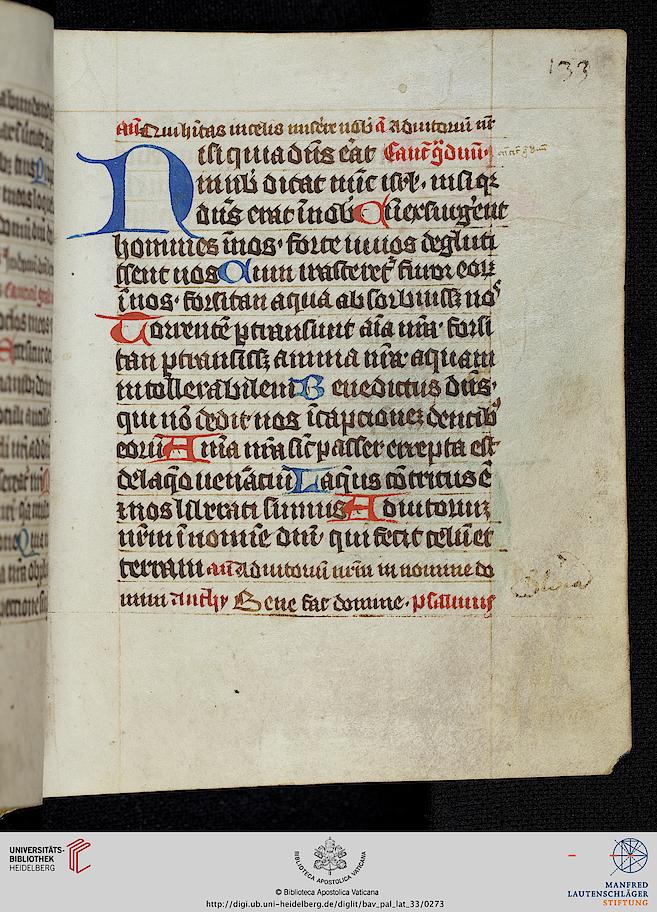 133
añ Qui hītas in celis miserere nob̄ añ Adiutoriū nr̄
Nisi quia dn̄s erat Cantc̄ gͣduū·
in nob̄ dicat nūc isrl̄· nisi qꝛ
dn̄s erat ī nob̄ Cū exsurgerēt
homines ī nos· forte uiuos degluti
ssent nos Cum irasceret᷑ furor eoꝝ
ī nos· forsitan aqua absorbuissꝫ nos
Torrentē ꝑtransiuit aīa nr̄a· forsi
tan ꝑtransissꝫ anima nr̄a aquam
intollerabilem Benedictus dn̄s·
qui nō dedit nos ī captioneꝫ dentib᷒
eorū Aīa nr̄a sic̄ passer erepta est
de laq̄o uenātiū Laq̄us cōtritus ē
⁊ nos liberati sumus Adiutoriuꝫ
nr̄m ī nomīe dn̄i· qui fecit celū et
terram añ Adiutoriū nr̄m in nomine do
mini Anthy Bene fac domine· psalmus
UNIVERSITÄTS-
BIBLIOTHEK
HEIDELBERG
BIBLIOTECA APOSTOLICA VATICANA
© Biblioteca Apostolica Vaticana
http://digi.ub.uni-heidelberg.de/diglit/bav_pal_lat_33/0273
MANFRED
LAUTENSCHLÄGER
STIFTUNG